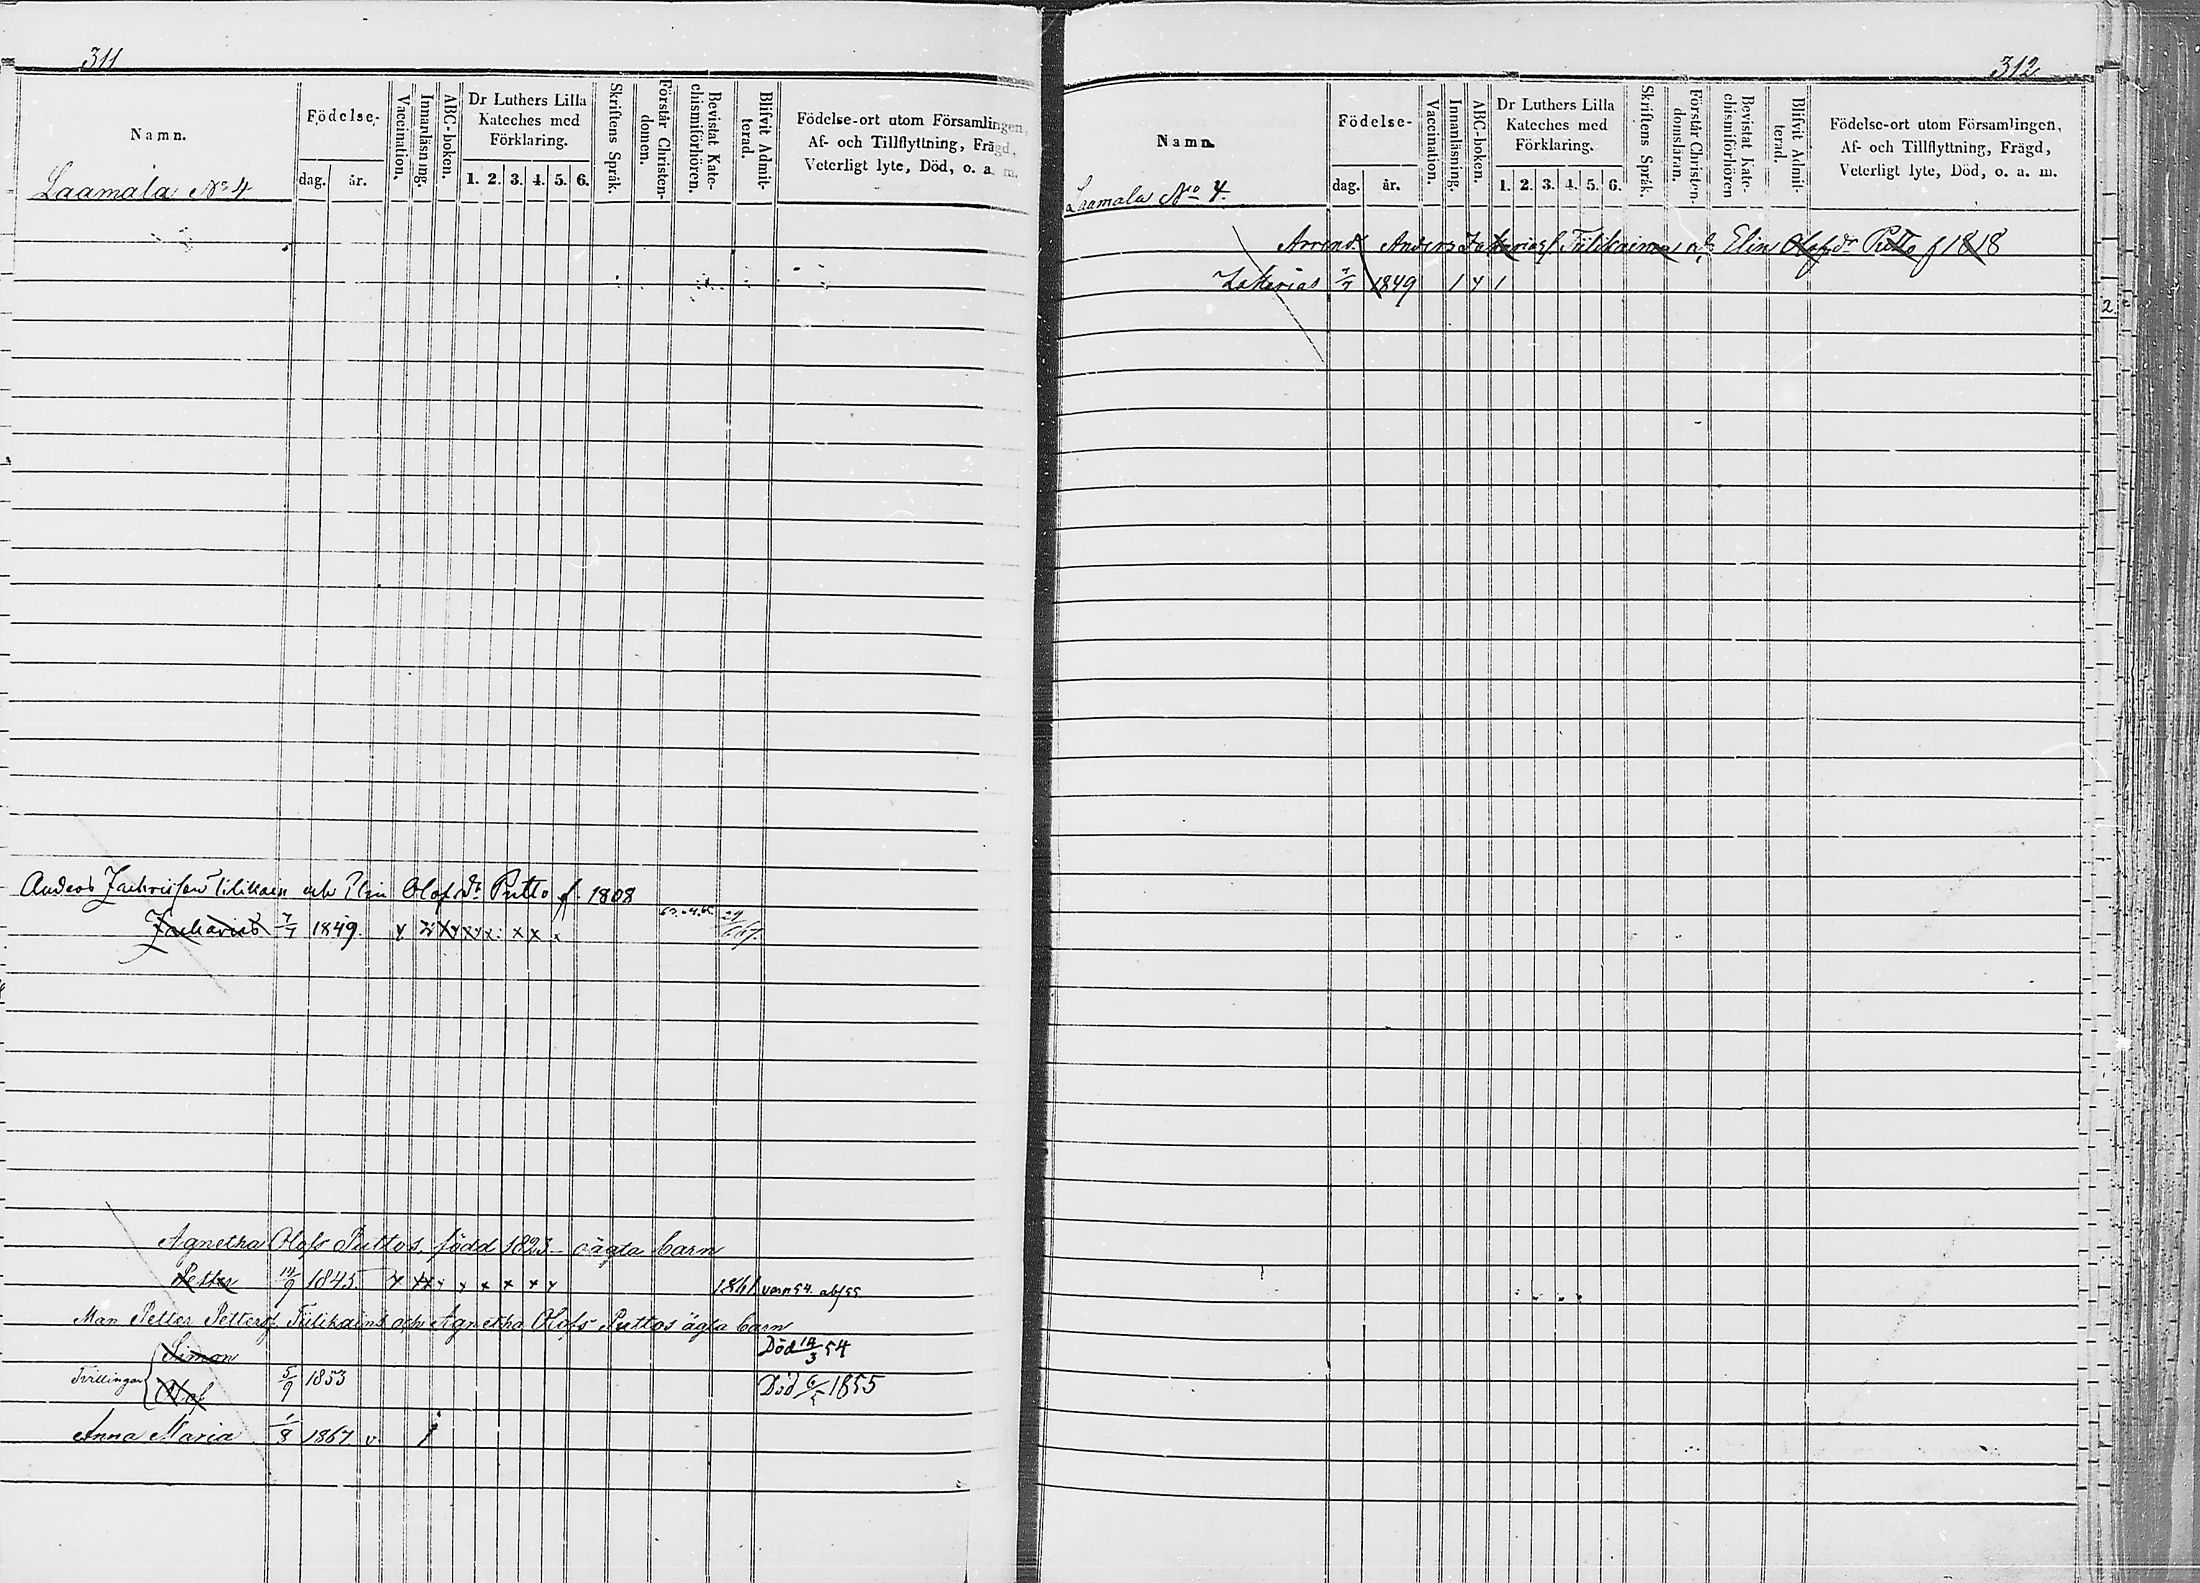 311
Namn.
Födelse-
dag. år.
Vaccination.
Innanläsning.
ABC-boken.
Dr Luthers Lilla
Kateches med
Förklaring.
1. 2. 3. 4. 5. 6.
Skriftens Språk.
Förstår Christen-
domen.
Bevistat Kate-
chismiförhören.
Blifvit Admit-
terad.
Födelse-ort utom Församlingen,
Af- och Tillflyttning, Frägd,
Veterligt lyte, Död, o. a. m.
Laamala No 4.
Anders och Elin Olofsdr Putto f. 1808
Zacharias 7/7 1849.
Agnetha Olofs Puttos född 1823 oägta barn
Petter 14/9 1845 1861
Man Petter Petters Tiilikains och Agnetha Olofs Puttos ägta barn
Simon Död 14/3 54
Tvillingar 5/9 1853
Olof Död 6/5 1855
Anna Maria 1/8 1867 v
312
Namn.
Födelse-
dag. år.
Vaccination.
Innanläsning.
ABC-boken.
Dr Luthers Lilla
Kateches med
Förklaring.
1. 2. 3. 4. 5. 6.
Skriftens Språk.
Förstår Christen-
domsläran.
Bevistat Kate-
chismiförhören
Blifvit Admit-
terad.
Födelse-ort utom Församlingen,
Af- och Tillflyttning, Frägd,
Veterligt lyte, Död, o. a. m.
Laamala No 4.
Arrend. Anders Zakarias Tiilikainen Elin Olofsdr Putto f 1818
Zakarias 7/7 1849
2